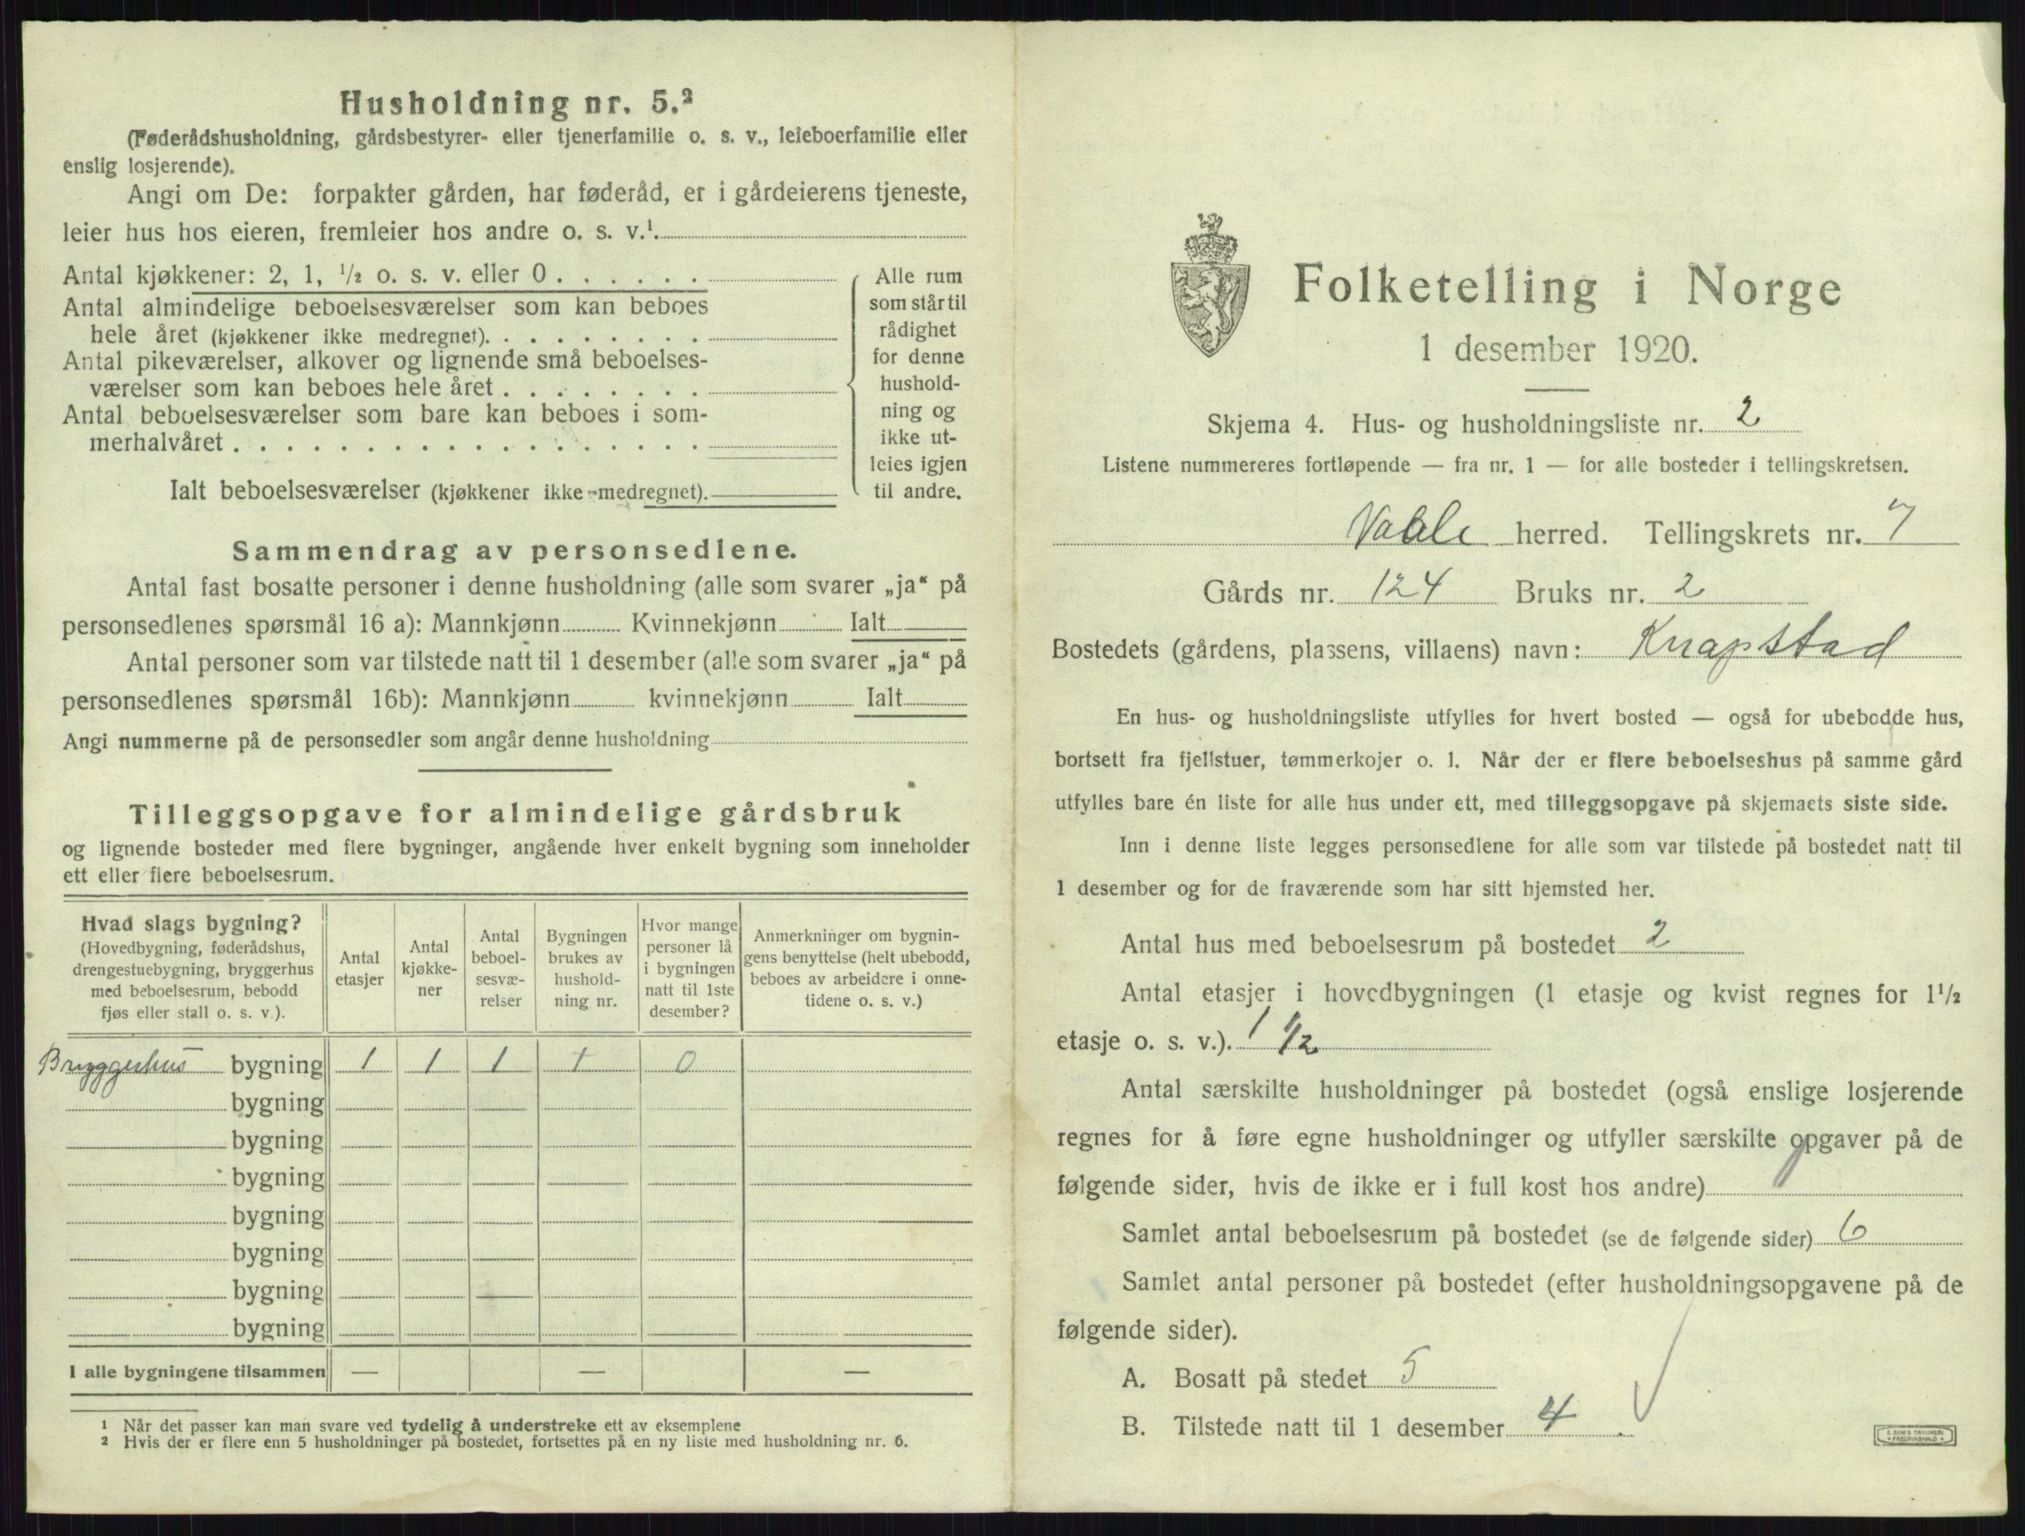 Husholdning nr. 5.²
(Føderådshusholdning, gårdsbestyrer- eller tjenerfamilie o. s. v., leieboerfamilie eller
enslig losjerende).
Angi om De: forpakter gården, har føderåd, er i gårdeierens tjeneste,
leier hus hos eieren, fremleier hos andre o. s. v.¹.
Antal kjøkkener: 2, 1, ½ o. s. v. eller 0 . . . . . .
Antal almindelige beboelsesværelser som kan beboes
hele året (kjøkkener ikke medregnet). . . . . . . . .
Antal pikeværelser, alkover og lignende små beboelses-
værelser som kan beboes hele året . . . . . . . .
Antal beboelsesværelser som bare kan beboes i som-
merhalvåret . . . . . . . . . . . . . . . . . .
Ialt beboelsesværelser (kjøkkener ikke medregnet).
Alle rum
som står til
rådighet
for denne
hushold-
ning og
ikke ut-
leies igjen
til andre.
Sammendrag av personsedlene.
Antal fast bosatte personer i denne husholdning (alle som svarer „ja“ på
personsedlenes spørsmål 16 a): Mannkjønn Kvinnekjønn Ialt
Antal personer som var tilstede natt til 1 desember (alle som svarer „ja“ på
personsedlenes spørsmål 16b): Mannkjønn kvinnekjønn Ialt
Angi nummerne på de personsedler som angår denne husholdning
Tilleggsopgave for almindelige gårdsbruk
og lignende bosteder med flere bygninger, angående hver enkelt bygning som inneholder
ett eller flere beboelsesrum.
Hvad slags bygning?
(Hovedbygning, føderådshus,
drengestuebygning, bryggerhus
med beboelsesrum, bebodd
fjøs eller stall o. s. v.).
Antal
etasjer
Antal
kjøkke-
ner
Antal
beboel-
sesvæ-
relser
Bygningen
brukes av
hushold-
ning nr.
Hvor mange
personer lå
i bygningen
natt til 1ste
desember?
Anmerkninger om bygnin-
gens benyttelse (helt ubebodd,
beboes av arbeidere i onne-
tidene o. s. v.)
Bryggerhus bygning 1 1 1 1 0
bygning
bygning
bygning
bygning
bygning
bygning
bygning
I alle bygningene tilsammen — — —
¹ Når det passer kan man svare ved tydelig å understreke ett av eksemplene
² Hvis der er flere enn 5 husholdninger på bostedet, fortsettes på en ny liste med husholdning nr. 6.
Folketelling i Norge
1 desember 1920.
Skjema 4. Hus- og husholdningsliste nr. 2
Listene nummereres fortløpende — fra nr. 1 — for alle bosteder i tellingskretsen.
Vaale herred. Tellingskrets nr. 7
Gårds nr. 124 Bruks nr. 2
Bostedets (gårdens, plassens, villaens) navn: Knapstad
En hus- og husholdningsliste utfylles for hvert bosted — også for ubebodde hus,
bortsett fra fjellstuer, tømmerkojer o. l. Når der er flere beboelseshus på samme gård
utfylles bare én liste for alle hus under ett, med tilleggsopgave på skjemaets siste side.
Inn i denne liste legges personsedlene for alle som var tilstede på bostedet natt til
1 desember og for de fraværende som har sitt hjemsted her.
Antal hus med beboelsesrum på bostedet 2
Antal etasjer i hovedbygningen (1 etasje og kvist regnes for 1½
etasje o. s. v.). 1 1/2
Antal særskilte husholdninger på bostedet (også enslige losjerende
regnes for å føre egne husholdninger og utfyller særskilte opgaver på de
følgende sider, hvis de ikke er i full kost hos andre)
Samlet antal beboelsesrum på bostedet (se de følgende sider) 6
Samlet antal personer på bostedet (efter husholdningsopgavene på de
følgende sider).
A. Bosatt på stedet 5
B. Tilstede natt til 1 desember 4